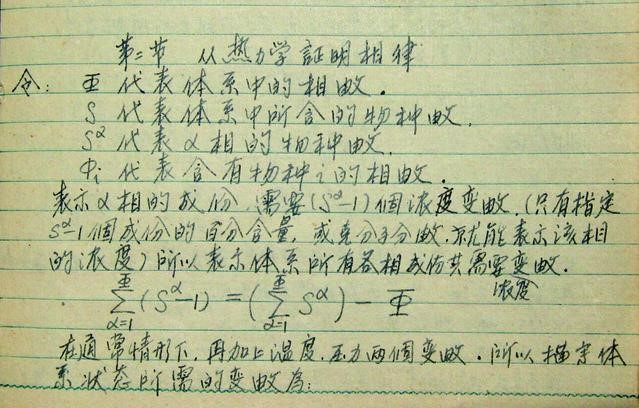 第二节 从热力学証明相律
令: Φ 代表体系中的相数.
S 代表体系中所含的物种数.
S^α 代表 α 相的物种数.
Φ_i 代表含有物种 i 的相数.
表示 α 相的成份, 需要 (S^α-1) 個浓度变数, (只有指定
S^α-1 個成份的百分含量, 或克分子分数, 就能表示该相
的浓度) 所以表示体系所有各相成份共需要变数.
浓度
∑_{α=1}^{Φ} (S^α-1) = (∑_{α=1}^{Φ} S^α) - Φ
在通常情形下, 再加上温度, 压力两個变数. 所以描宗体
系状态所需的变数为: